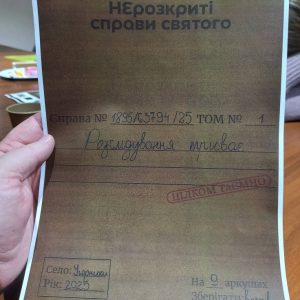 НЕрозкриті
справи святого
Справа № 1895/63794/25 ТОМ № 1
Розслідування триває
ЦІЛКОМ ТАЄМНО
Село: Угорники
Рік: 2025
На 9 аркушах
Зберігати: